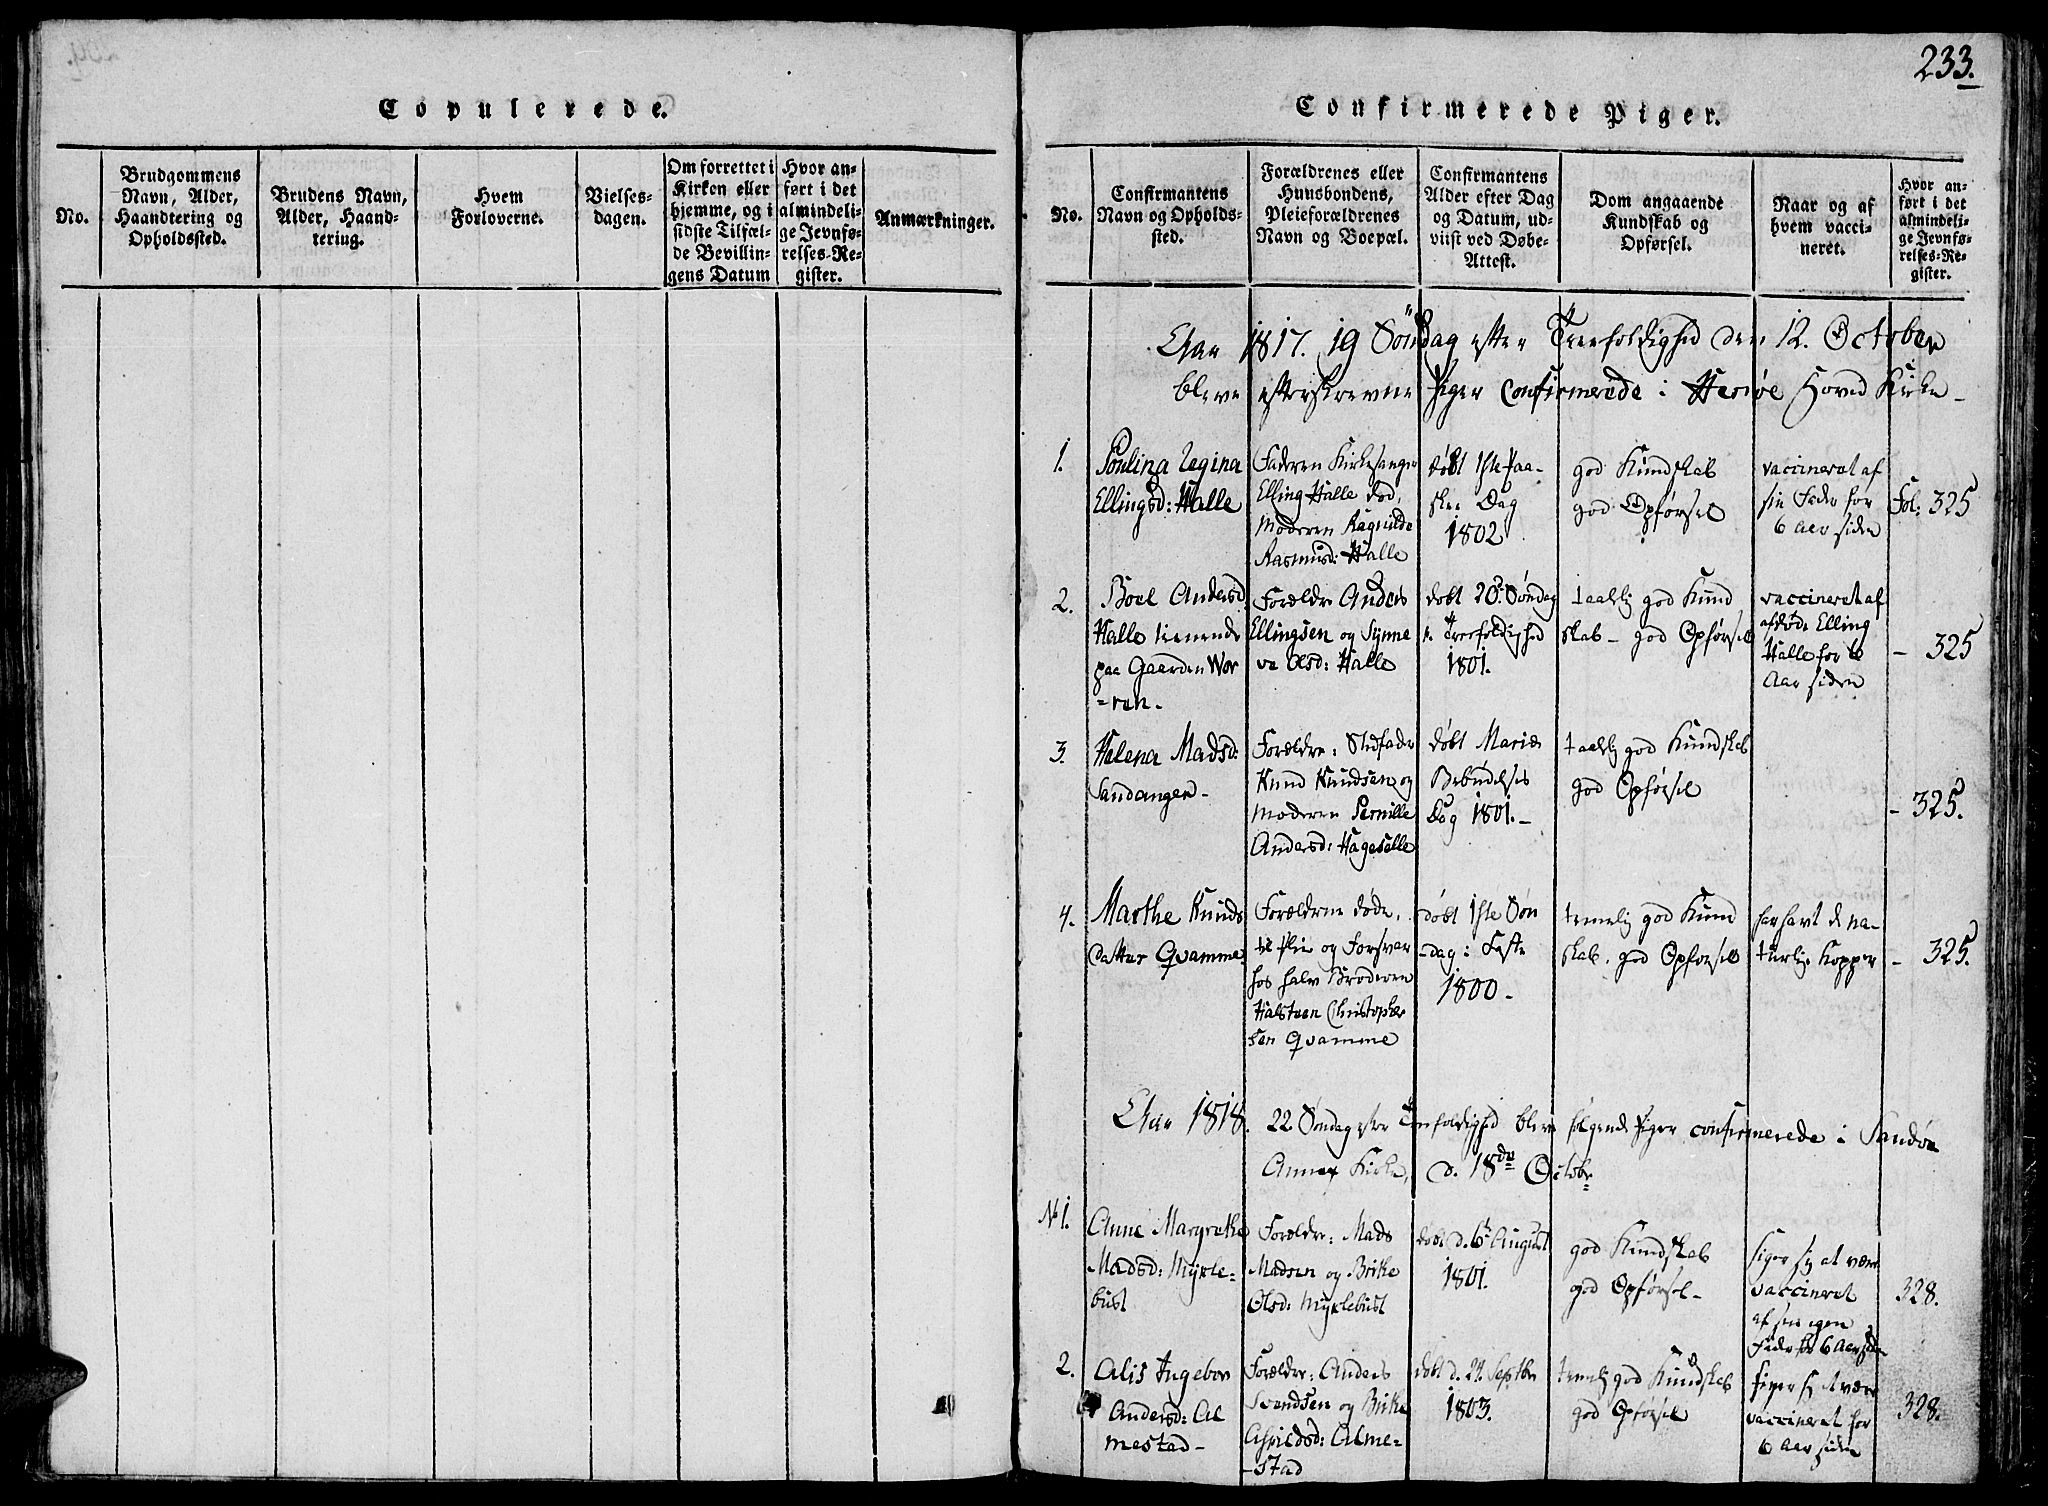 233.
Copulerede.
No.
Brudgommens
Navn, Alder,
Haandtering og
Opholdssted.
Brudens Navn,
Alder, Haand-
tering.
Hvem
Forloverne.
Vielses-
dagen.
Om forrettet i
Kirken eller
hjemme, og i
sidste Tilfæl-
de Bevillin-
gens Datum
Hvor an-
ført i det
almindeli-
ge Jevnfø-
relses-Re-
gister.
Anmærkninger.
Confirmerede Piger.
No.
Confirmantens
Navn og Opholds-
sted.
Forældrenes eller
Huusbondens,
Pleieforældrenes
Navn og Boepæl.
Confirmantens
Alder efter Dag
og Datum, ud-
viist ved Døbe-
Attest.
Dom angaaende
Kundskab og
Opførsel.
Naar og af
hvem vacci-
neret.
Hvor an-
ført i det
almindeli-
ge Jevnfø-
relses-Re-
gister.
1817. 19 Søndag efter Treefoldighed den 12. October
bleve efterskrevne Piger confirmerede i Herrøe Hoved Kirke
1.
Poulina Regina
Ellingsd: Halle
Faderen Kirkesanger
Elling Halle død,
Moderen Ragnilde
Rasmusd: Halle
døbt 1ste Paa-
ske Dag
1802
god Kundskab
god Opførsel
vaccineret af
sin Fader for
6 Aar siden
Fol: 325
2.
Boel Andersd
Halle tienende
paa Gaarden Vor
=ren.
Forældre Anders
Ellingsen og Synne
va Olsd: Halle
døbt 20. Søndag
e. Treefoldighed
1801.
taalelig god Kund
skab - god Opførsel
vaccineret af
afdøde Elling
Halle for 6
Aar siden
- 325
3.
Helena Madsd:
Sandanger -
Forældre: Stedfader
Knud Knudsen og
Moderen Pernille
Andersd: Hageselle
døbt Mariæ
Bebudelses
Dag 1801. -
taalelig god Kundskab
god Opførsel
- 325.
4.
Marthe Knuds
datter Qvamme
Forældrene døde,
til Pleie og Forsvar
hos halv Broderen
Halsteen Christopher
sen Qvamme
døbt 1ste Søn
-dag i Faste
1800 -
temelig god Kund
skab, god Opførsel
har havt de na-
turlige Kopper
- 325.
1818. 22 Søndag efter Treefoldighed bleve følgende Piger confirmerede i Sandøe
Annex Kirke, d. 18de Octobr
No 1.
Anne Margrethe
Madsd: Myxle-
bust
Forældre: Mads
Madsen og Brithe
Olsd: Myxlebust
døbt d. 6 August
1801.
god Kundskab
god Opførsel -
siger sig at være
vaccineret
af sin egen
Fader for 6 Aar siden
328.
2.
Alis Ingebor
Andersd: Al
mestad -
Forældre: Anders
Svendsen og Brithe
Aspildsd: Alme-
-stad
døbt d. 24. Septbr
1803.
temelig god Kundskab
god Opførsel
siger sig at være
vaccineret for
6 Aar siden
328.